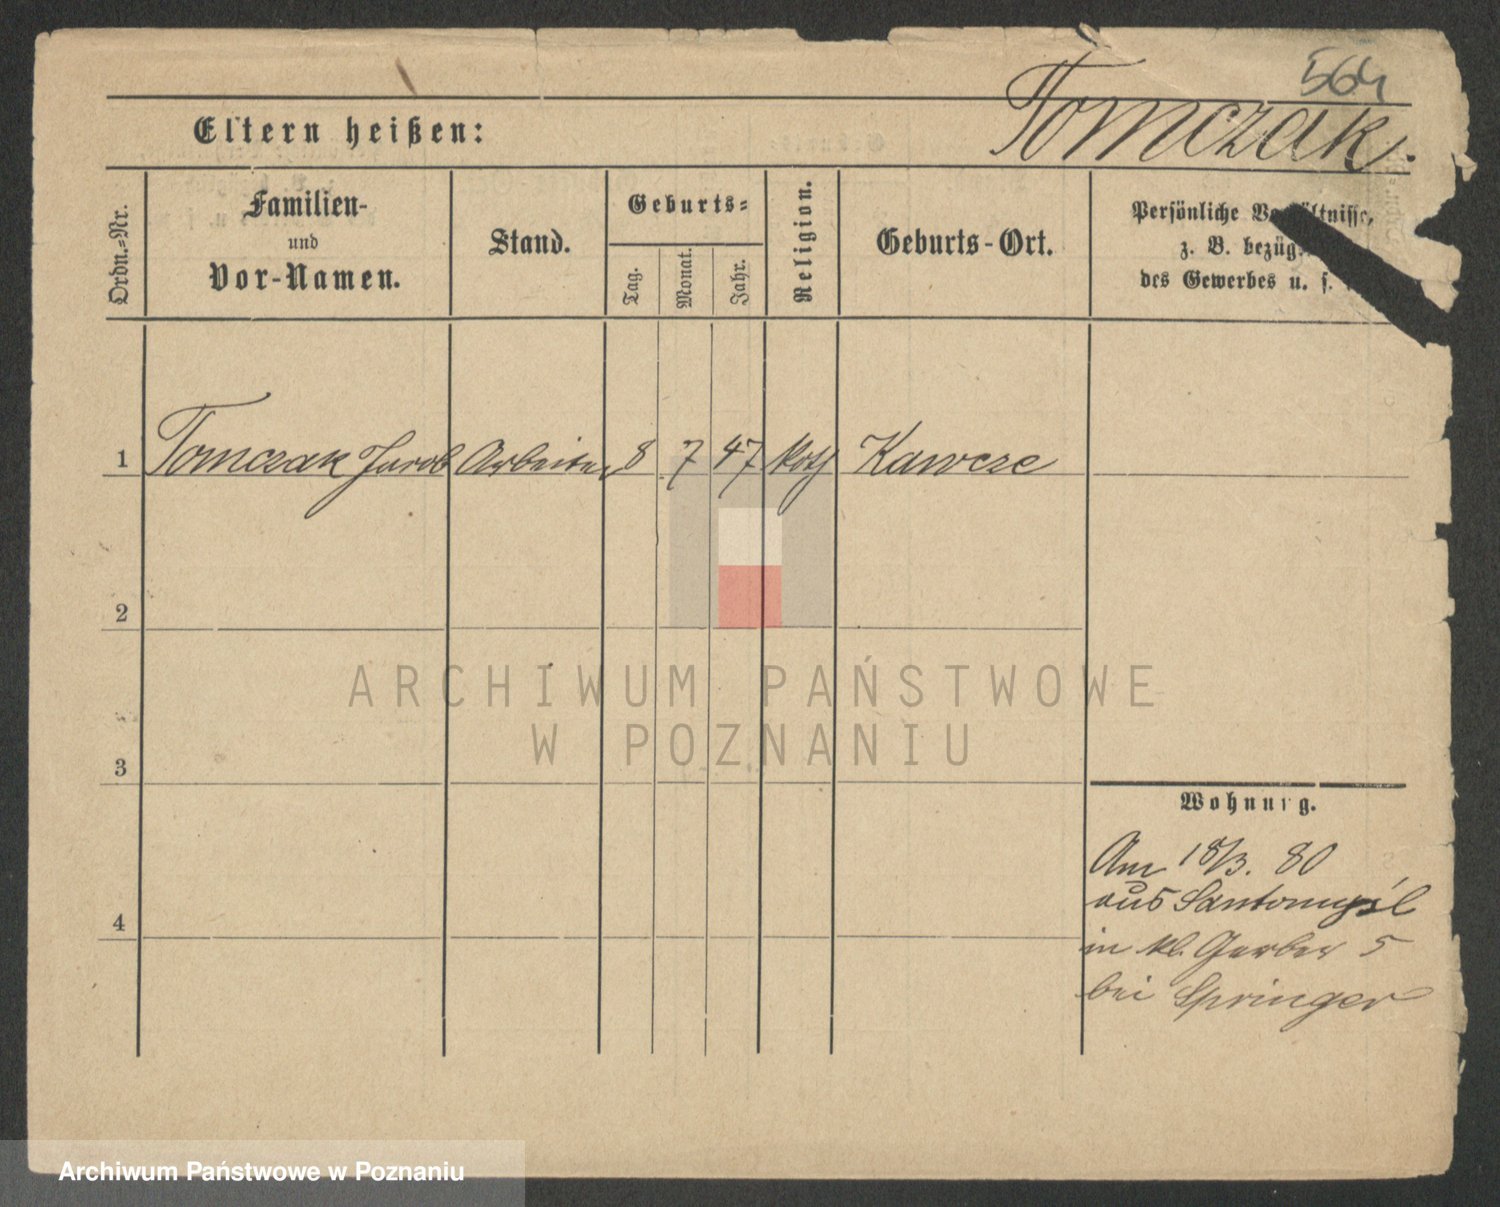 564
Tomczak.
Eltern heißen:
Ordn.=Nr.
Familien-
und
Vor-Namen.
Stand.
Geburts=
Tag.
Monat.
Jahr.
Religion.
Geburts-Ort.
Persönliche
z. B. bezüg
des Gewerbes u. s.
1 Tomczak Jacob Arbeiter 8 7 47 kath Kawcze
2
3
4
Wohnung.
Am 18/3. 80
aus Santomyśl
in kl. Gerber 5
bei Springer
ARCHIWUM PAŃSTWOWE
W POZNANIU
Archiwum Państwowe w Poznaniu